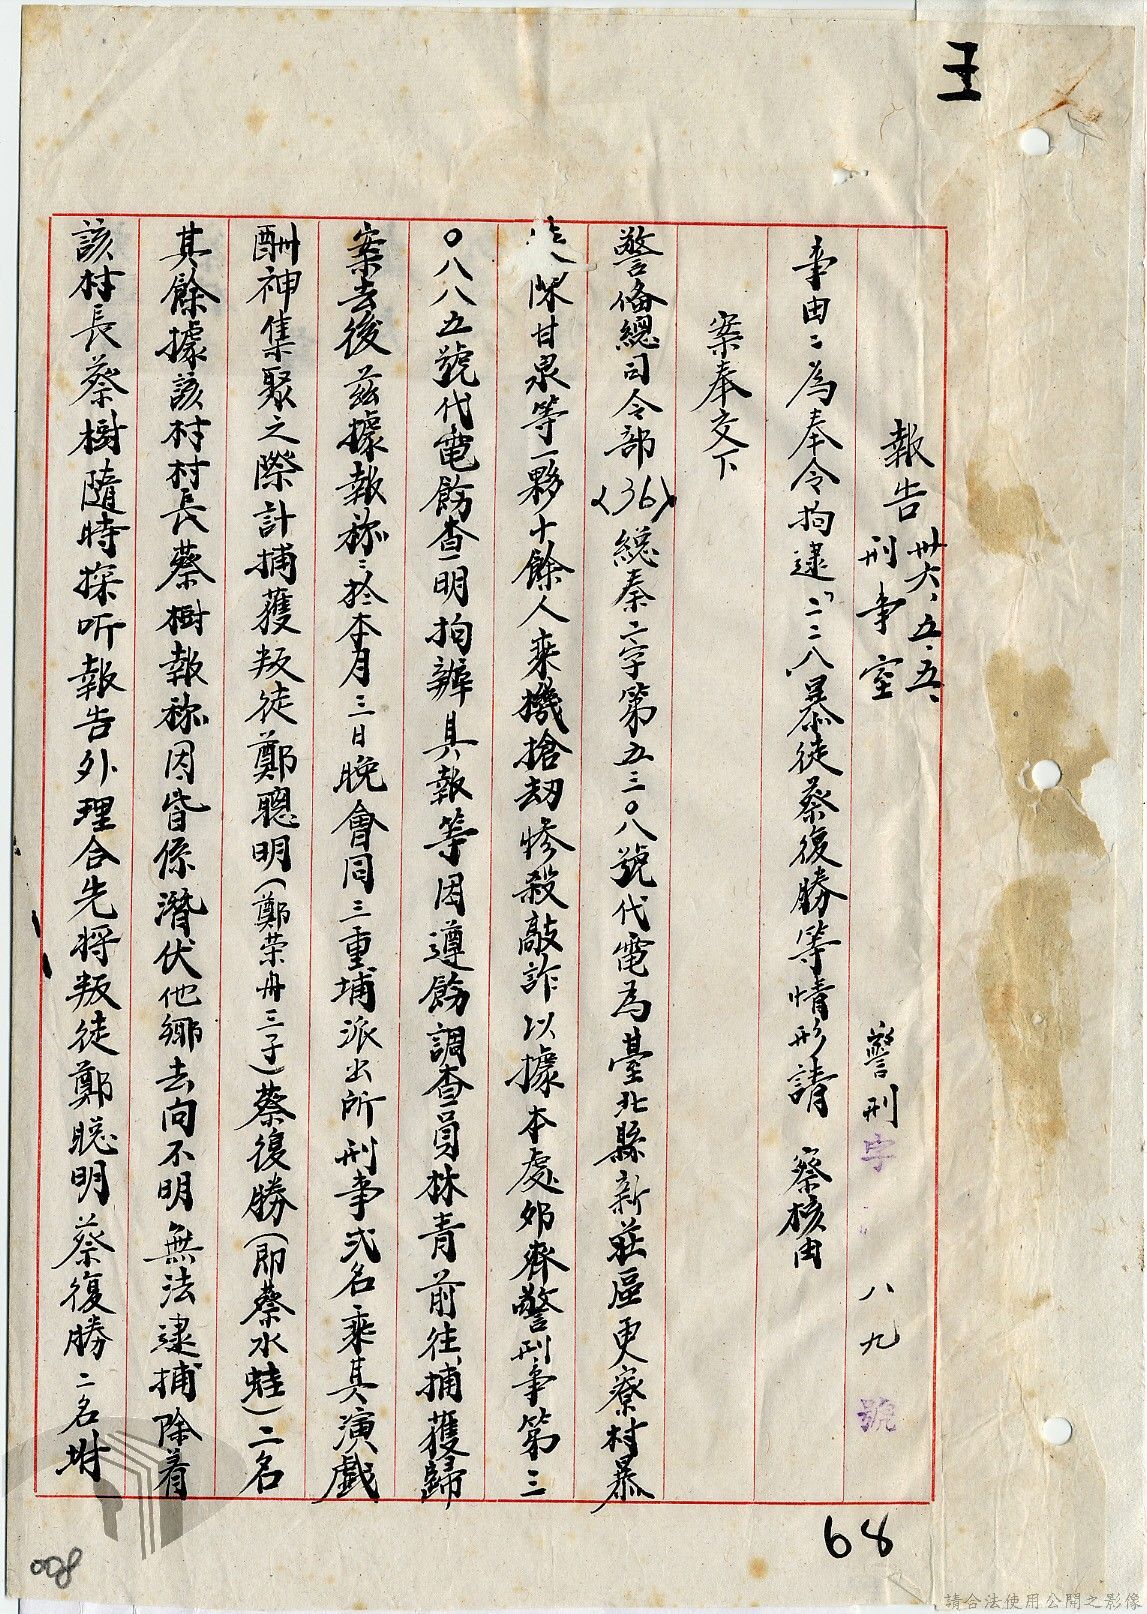 王
報告 卅六、五、五、
刑事室
警刑字 八九號
事由:為奉令拘逮「二二八」暴徒蔡復勝等情形請 察核由
案奉交下
警备總司令部(36)總秦二字第五三〇八號代電為臺北縣新莊區更寮村暴
陳甘泉等一夥十餘人乘機搶劫慘殺敲詐以據本處郊齊警刑事第三
〇八八五號代電飭查明拘辦具報等因遵飭調查員林青前往捕獲歸
案去後茲據報称:於本月三日晚會同三重埔派出所刑事弍名乘其演戲
酬神集聚之際計捕獲叛徒鄭聰明(鄭荣舟三子)蔡復勝(即蔡水蛙)二名
其餘據該村村長蔡樹報称因皆係潛伏他鄉去向不明無法逮捕除着
該村長蔡樹隨時探听報告外理合先将叛徒鄭聪明蔡復勝二名坿
68
008
請合法使用公開之影像